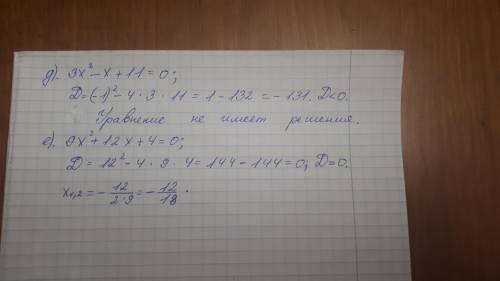 д). 3x² - x + 11 = 0;
D = (-1)² - 4 · 3 · 11 = 1 - 132 = - 131. D<0.
Уравнение не имеет решения.
е). 9x² + 12x + 4 = 0;
D = 12² - 4 · 9 · 4 = 144 - 144 = 0; D=0.
x₁,₂ = - 12/2·9 = - 12/18 .